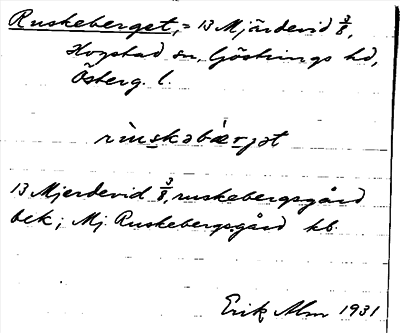 Ruskeberget, = 13 Mjärdevid 3/8,
Hogstad sn, Göstrings hd,
Österg. l.
13 Mjerdevid 3/8, ruskebergsgård
bek; Mj. Ruskebergsgård kb.
Erik Alm 1931